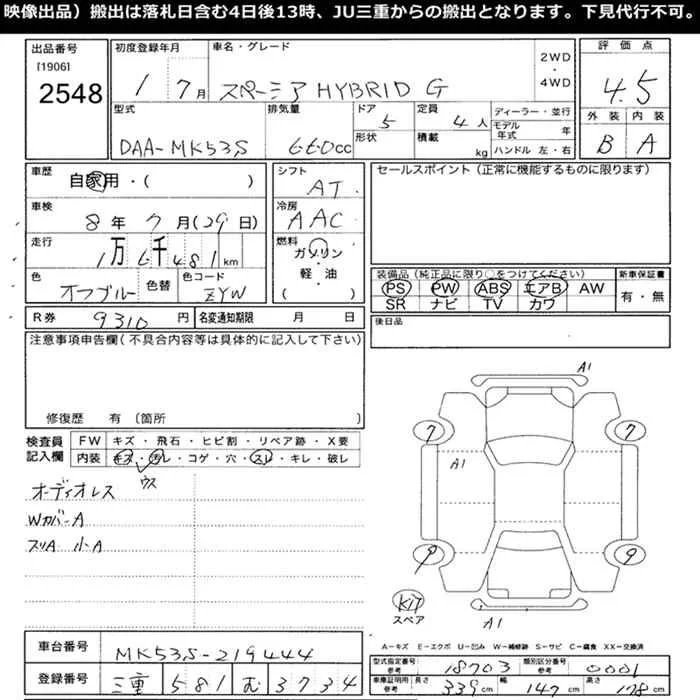 映像出品）搬出は落札日含む4日後13時、JU三重からの搬出となります。下見代行不可。
出品番号
[1906]
2548
初度登録年月
1 7月
車名・グレード
スペーシア HYBRID G
2WD
・
4WD
評価点
4.5
外装 内装
B A
型式
DAA-MK53S
排気量
660cc
ドア
5
形状
定員
4人
積載
kg
ディーラー・並行
モデル年式 年
ハンドル 左・右
車歴
自家用・( )
シフト
AT
セールスポイント（正常に機能するものに限ります）
車検
8年7月(29日)
冷房
AAC
走行
1万6千481km
燃料
ガソリン
・
軽・油
( )
色
オフブルー
色替
色コード
ZYW
装備品（純正品に限り○をつけてください）
PS PW ABS エアB AW
SR ナビ TV カワ
新車保証書
有・無
R券
9310円
名変通知期限 月 日
後日品
注意事項申告欄（不具合内容等は具体的に記入して下さい）
修復歴 有 〔箇所 〕
検査員記入欄
FW キズ・飛石・ヒビ割・リペア跡・X要
内装 キズ・汚レ・コゲ・穴・スレ・キレ・破レ
ウス
オーディオレス
WカバーA
スリA 小A
A1
7
7
A1
9
9
Kit
スペア
A1
A=キズ E=エクボ U=凹み W=補修跡 S=サビ C=腐食 XX=交換済
車台番号
MK53S-219444
登録番号
三重 581 む 3734
型式指定番号 参考
18703
類別区分番号 参考
0001
車庫証明用 参考
長さ 339cm
幅 147cm
高さ 178cm